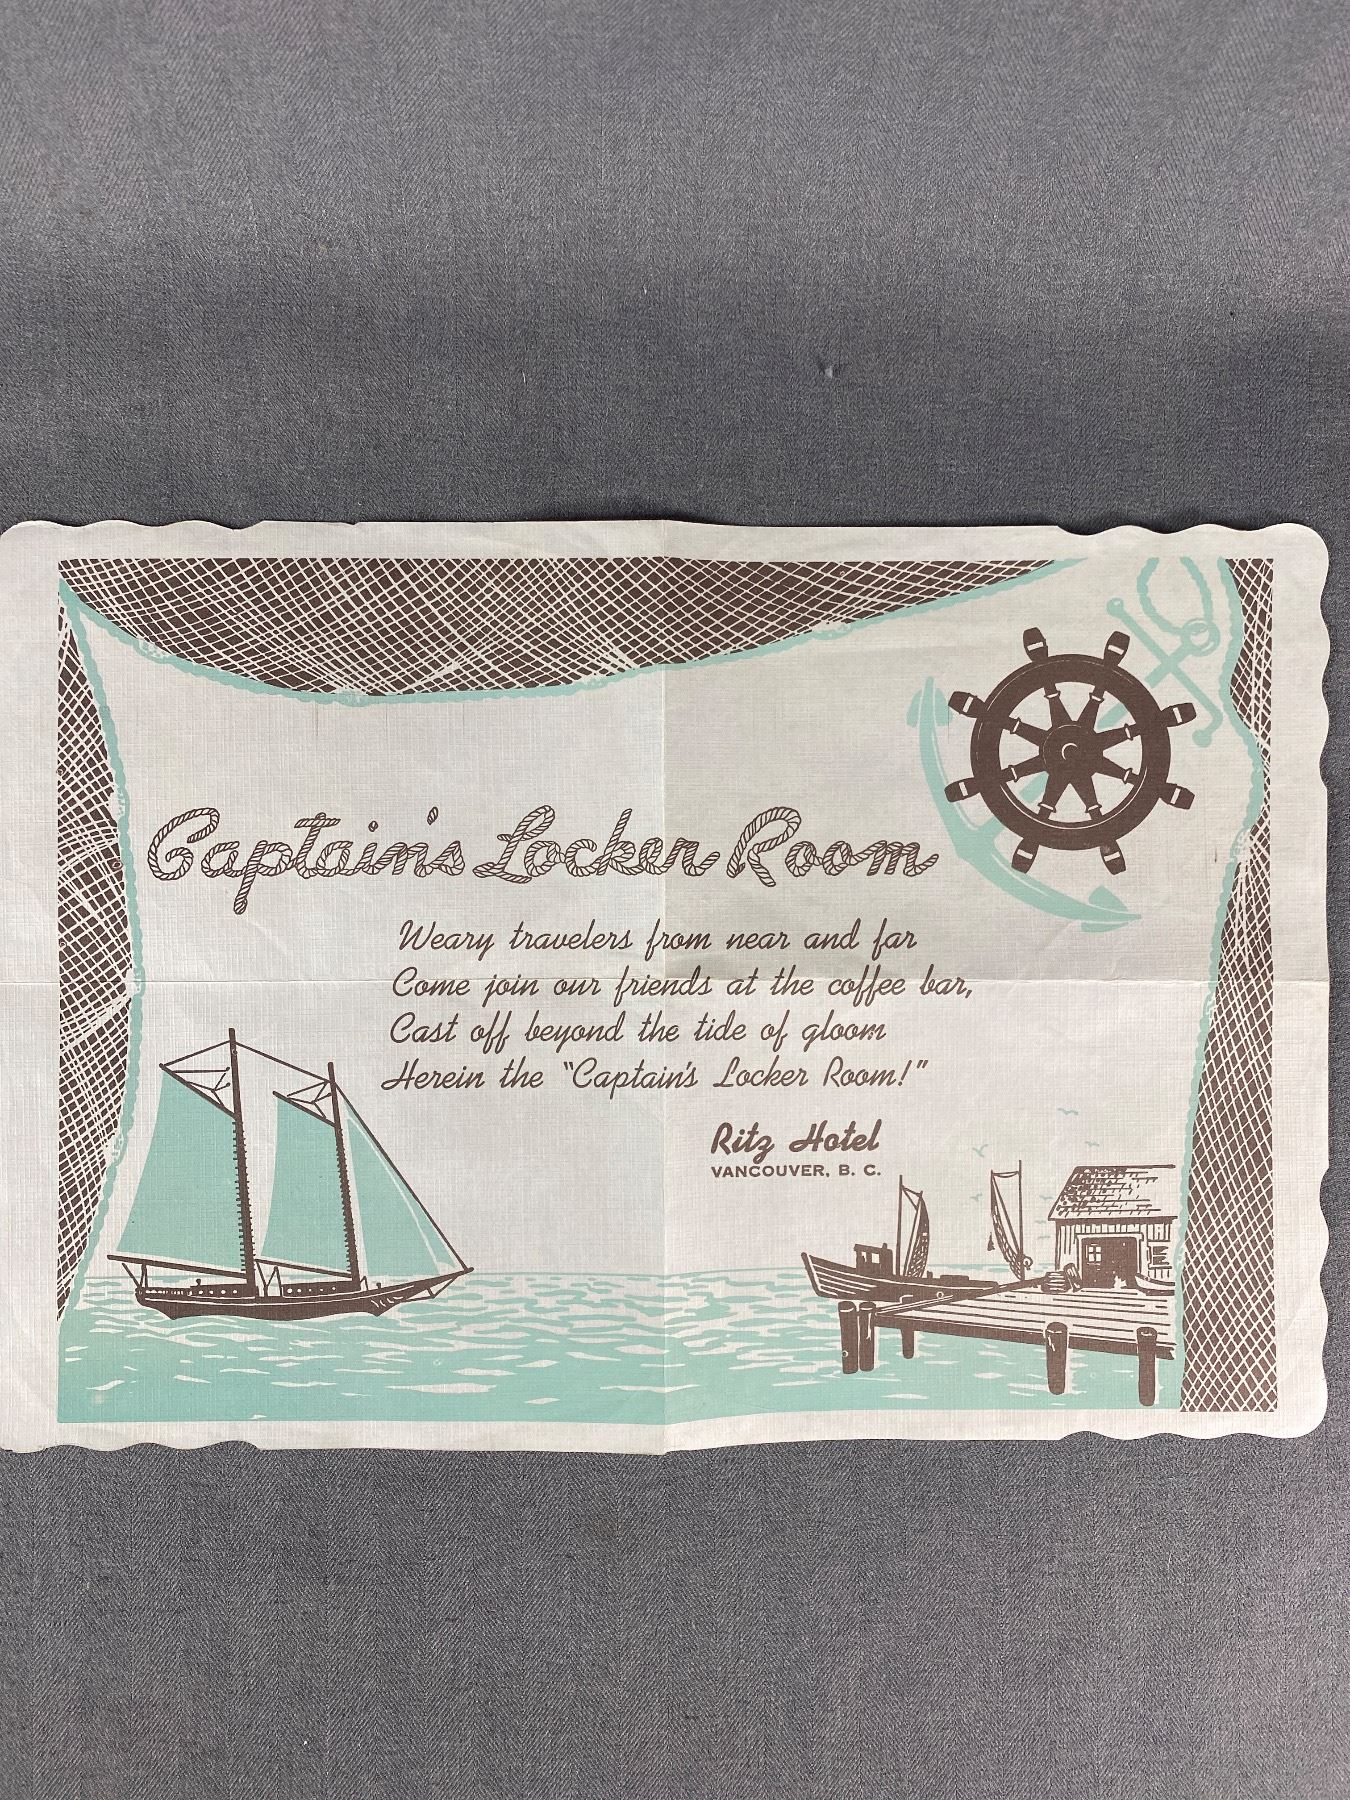 Captain's Locker Room
Weary travelers from near and far
Come join our friends at the coffee bar,
Cast off beyond the tide of gloom
Herein the "Captain's Locker Room!"
Ritz Hotel
VANCOUVER, B. C.